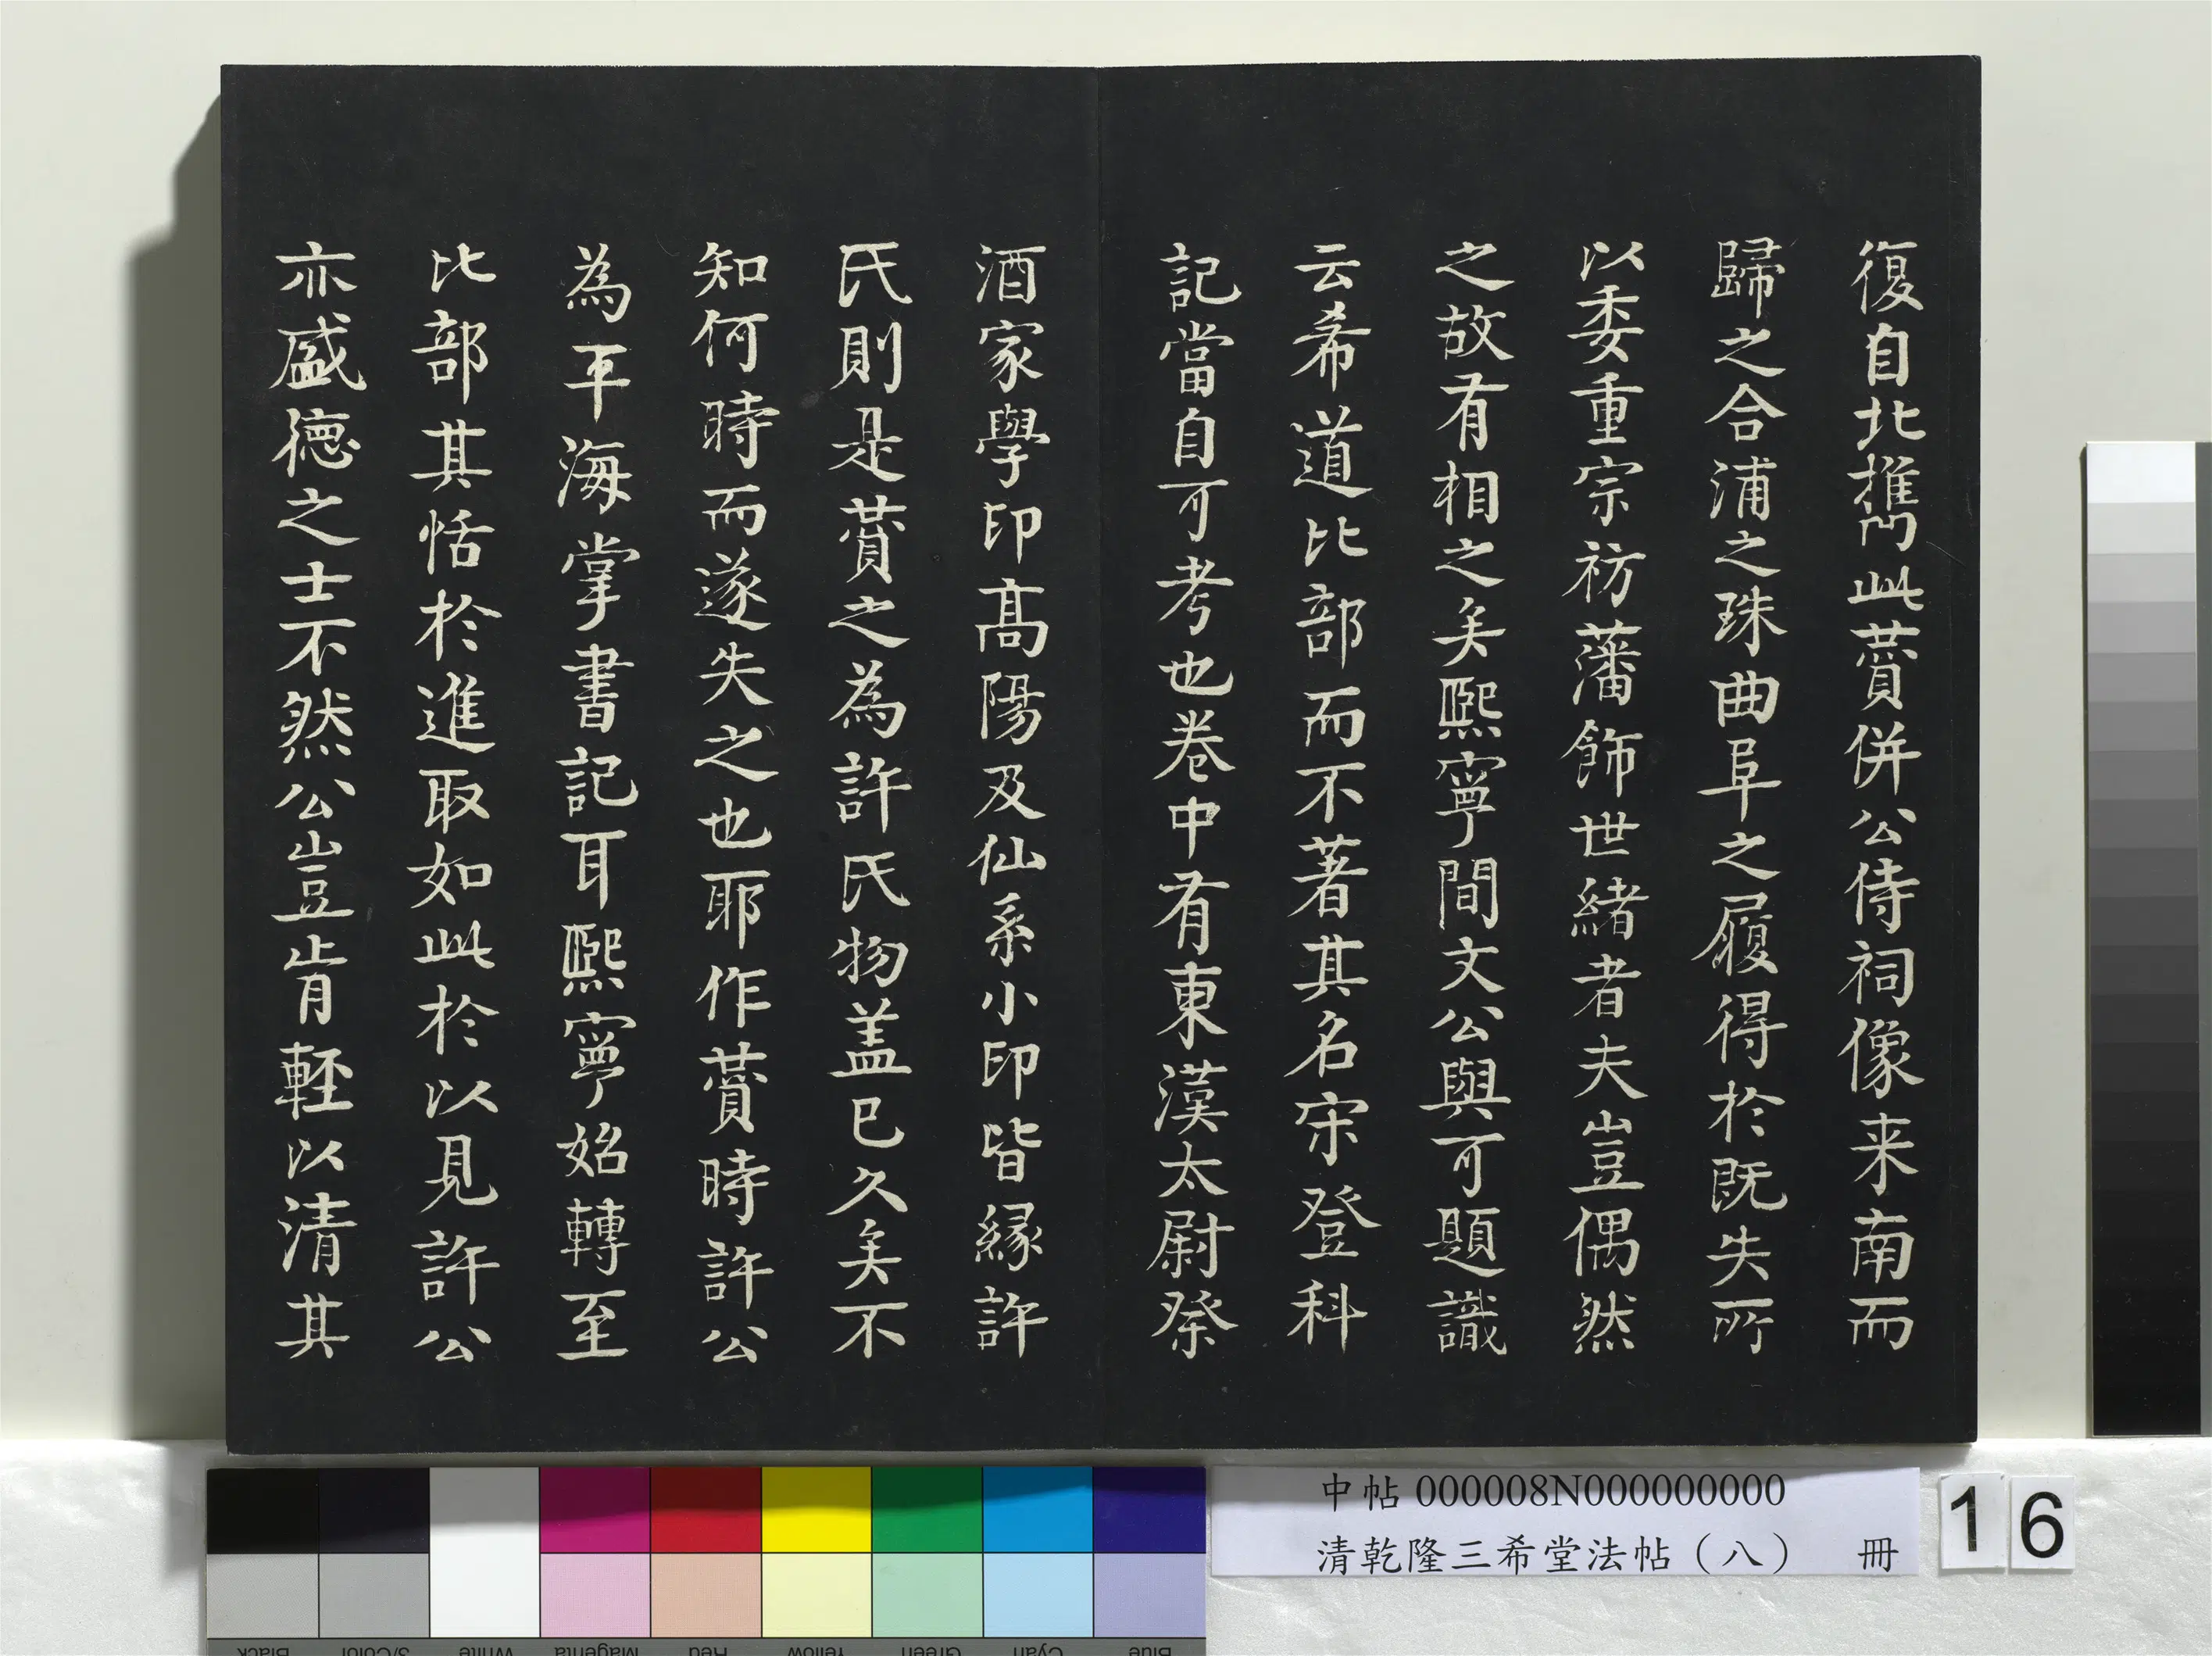 復自北攜此薲併公侍祠像来南而
歸之合浦之珠曲阜之履得於既失所
以委重宗祊藩飾世緒者夫豈偶然
之故有相之矣熙寧間文公與可題識
云希道比部而不著其名宋登科
記當自可考也卷中有東漢太尉祭
酒家學印高陽及仙系小印皆縁許
氏則是薲之為許氏物盖已久矣不
知何時而遂失之也耶作薲時許公
為平海掌書記耳熙寧始轉至
比部其恬於進取如此於以見許公
亦盛德之士不然公豈肯輕以清其
中帖 000008N000000000
清乾隆三希堂法帖（八） 冊
16
Black
3/Color
White
Magenta
Red
Yellow
Green
Cyan
Blue